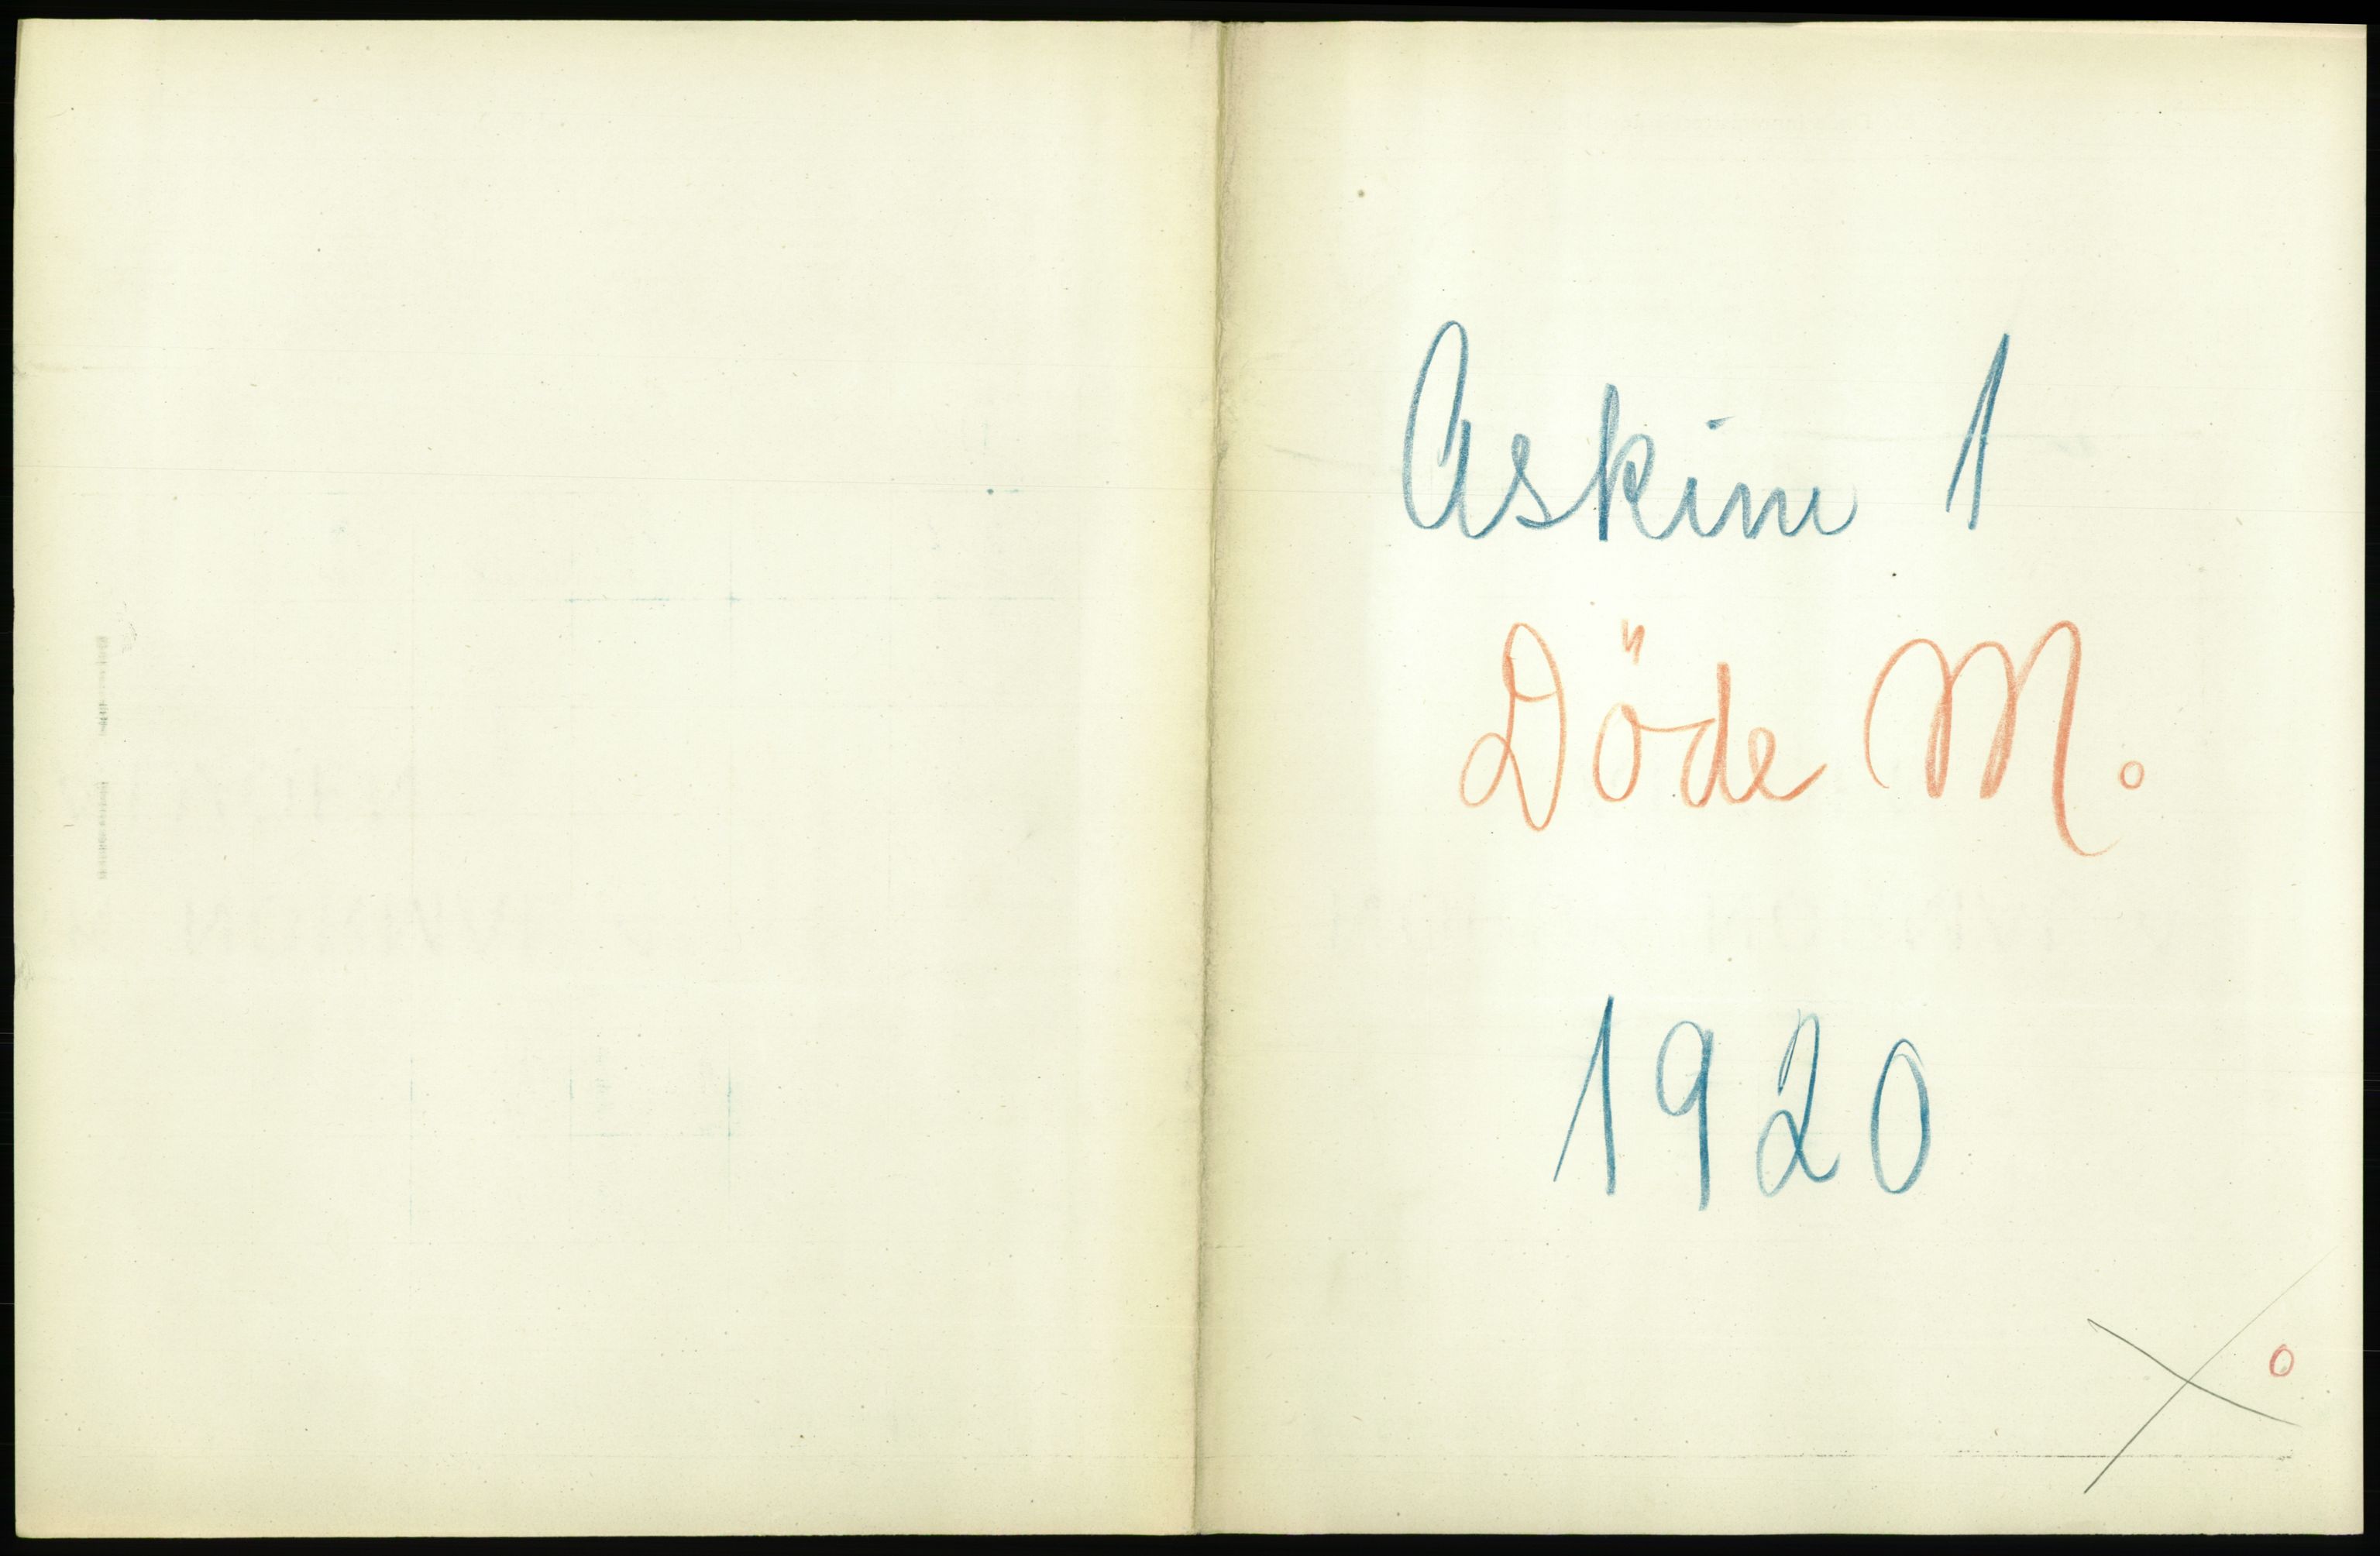 Askim 1
Döde M.
1920